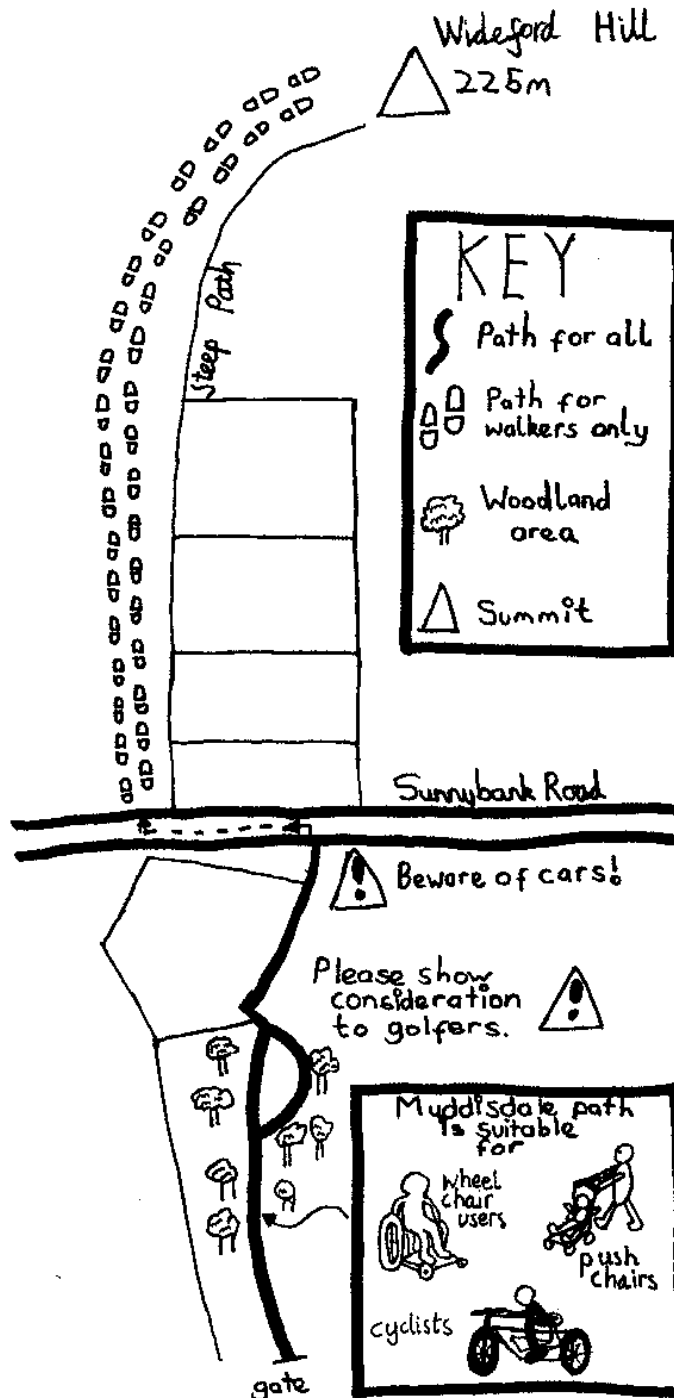 Wideford Hill
225m
Steep Path
KEY
Path for all
Path for
walkers only
Woodland
area
Summit
Sunnybank Road
Beware of cars!
Please show
consideration
to golfers.
Muddisdale path
Is suitable
for
wheel
chair
users
push
chairs
cyclists
gate